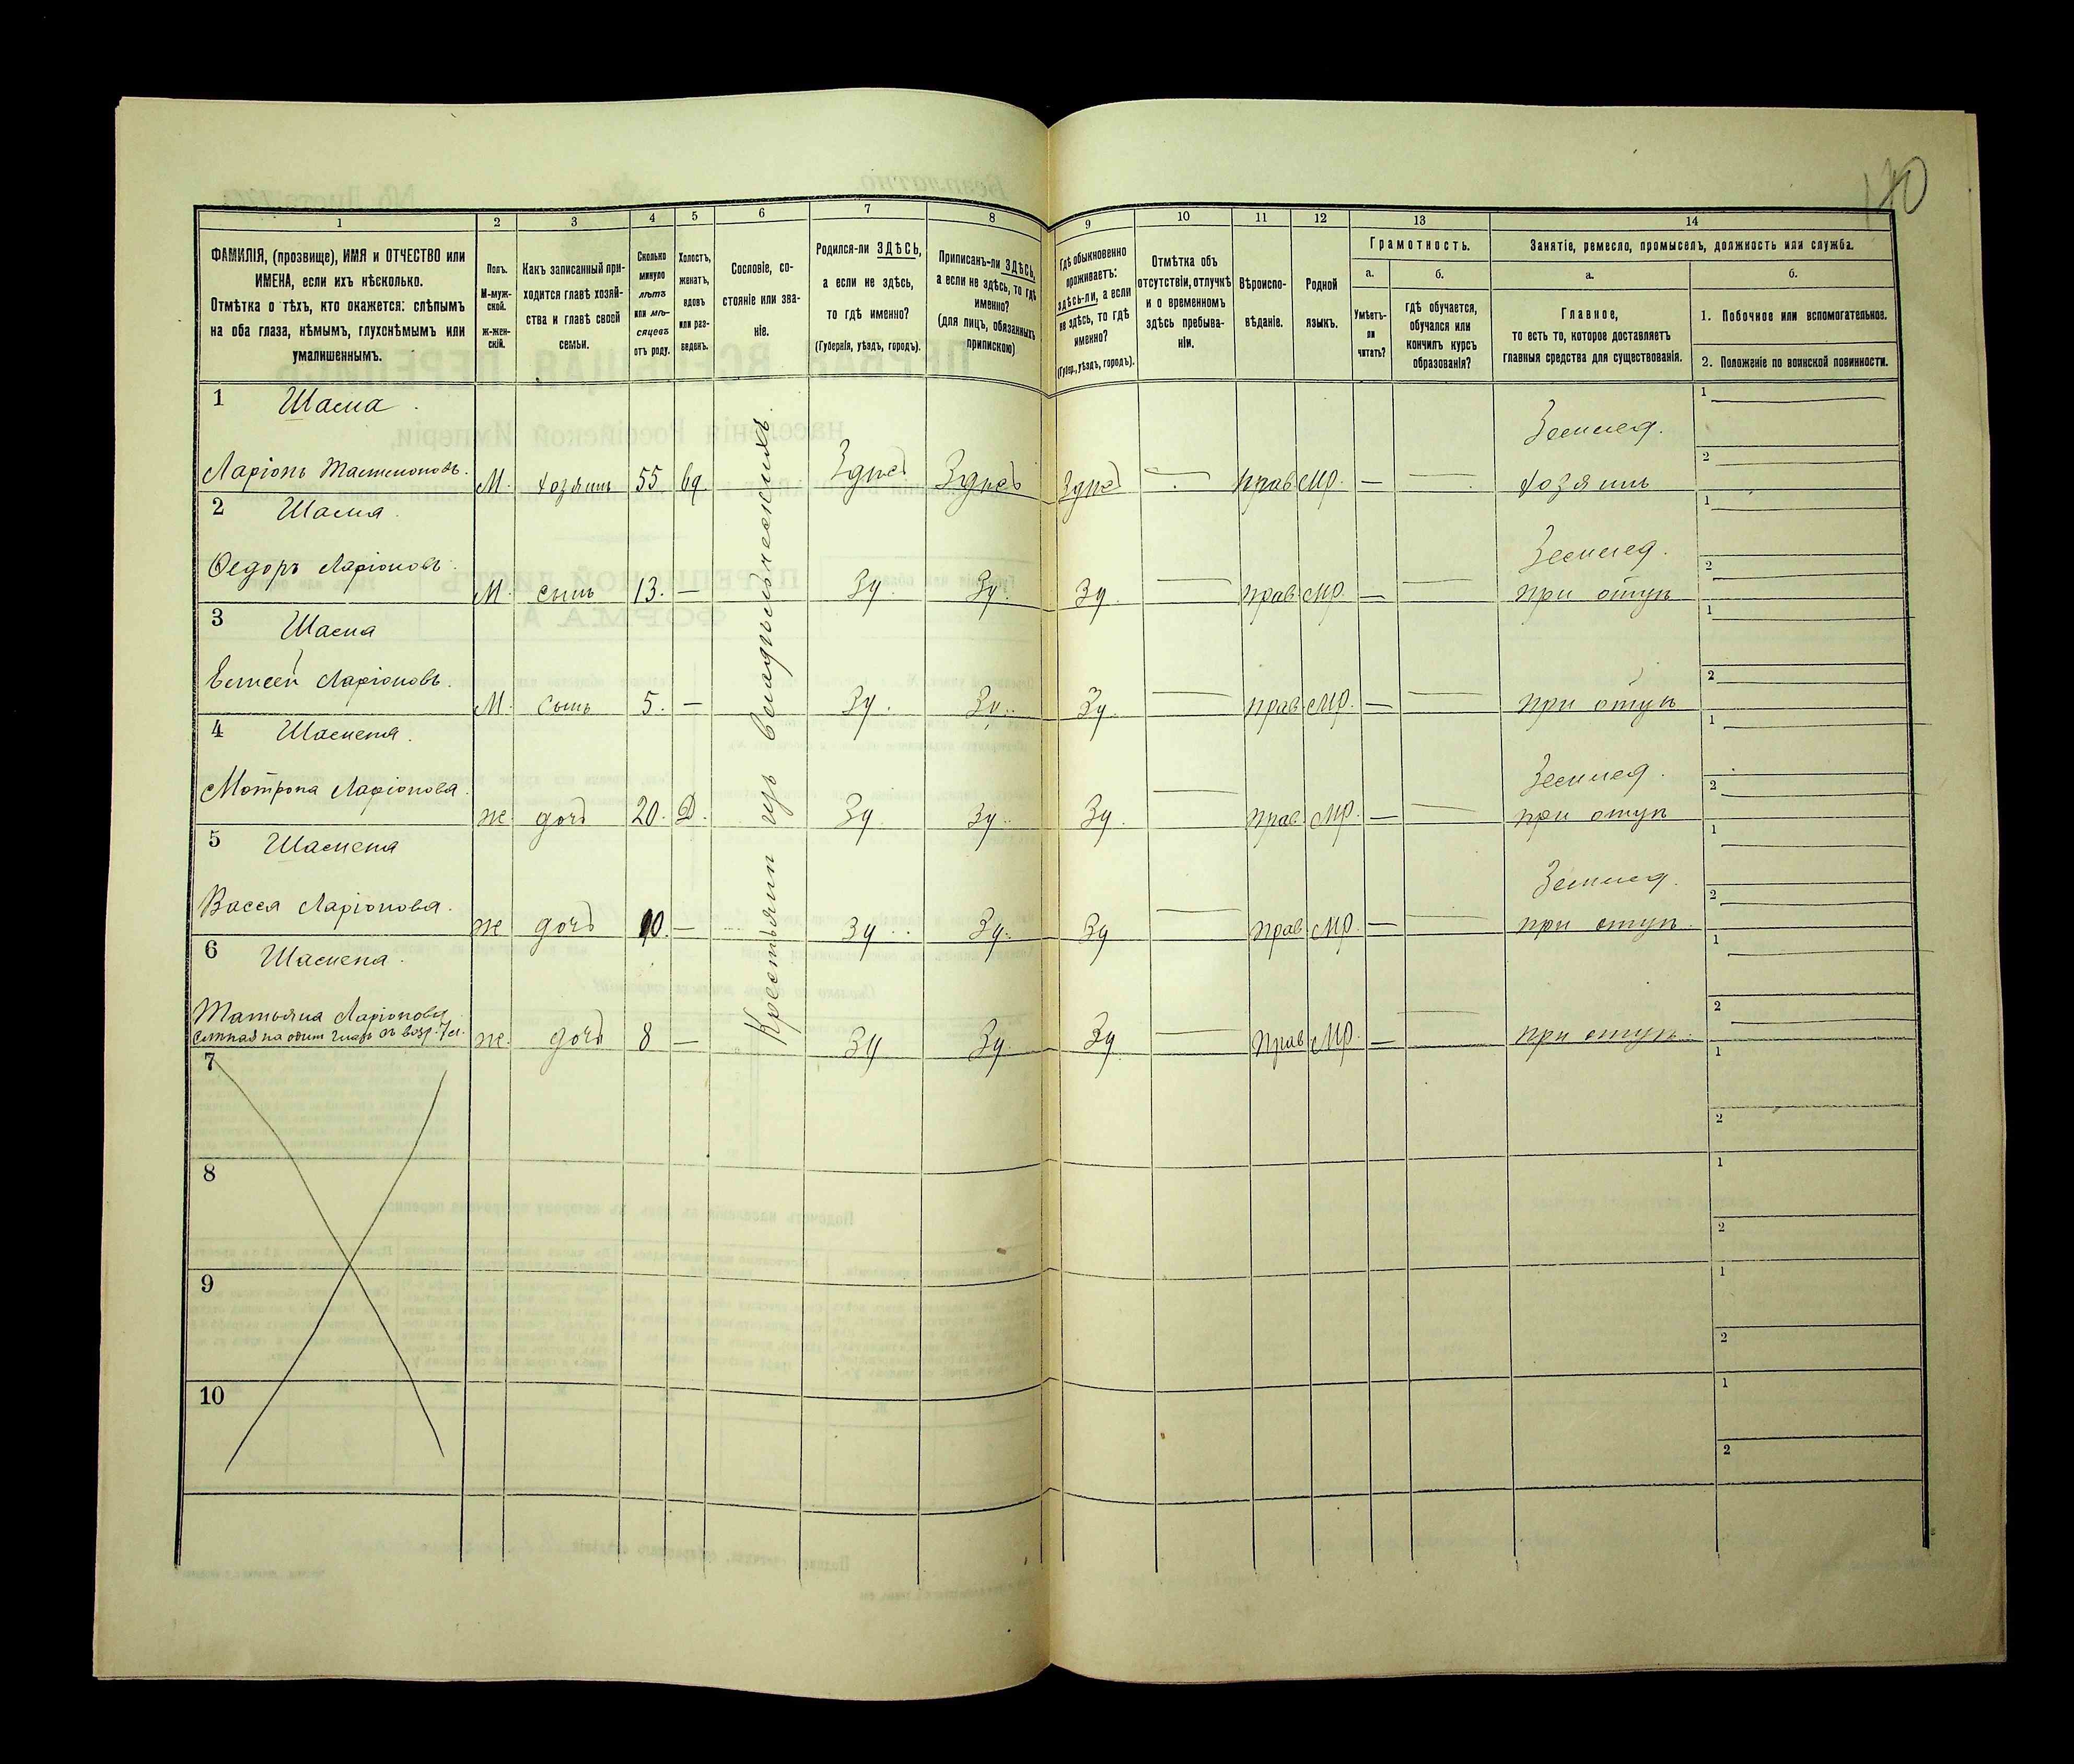 140
1 2 3 4 5 6 7 8 9 10 11 12 13 14
ФАМИЛІЯ, (прозвище), ИМЯ и ОТЧЕСТВО или
ИМЕНА, если ихъ нѣсколько.
Отмѣтка о тѣхъ, кто окажется: слѣпымъ
на оба глаза, нѣмымъ, глухонѣмымъ или
умалишеннымъ.
Полъ.
М-муж-
ской.
Ж-жен-
скій.
Какъ записанный при-
ходится главѣ хозяй-
ства и главѣ своей
семьи.
Сколько
минуло
лѣтъ
или мѣ-
сяцевъ
отъ роду.
Холостъ,
женатъ,
вдовъ
или раз-
веденъ.
Сословіе, со-
стояніе или зва-
ніе.
Родился-ли ЗДѢСЬ,
а если не здѣсь,
то гдѣ именно?
(Губернія, уѣздъ, городъ).
Приписанъ-ли ЗДѢСЬ,
а если не здѣсь, то гдѣ
именно?
(для лицъ, обязанныхъ
припискою)
Гдѣ обыкновенно
проживаетъ:
здѣсь-ли, а если
не здѣсь, то гдѣ
именно?
(Губер., уѣздъ, городъ).
Отмѣтка объ
отсутствіи, отлучкѣ
и о временномъ
здѣсь пребыва-
ніи.
Вѣроиспо-
вѣданіе.
Родной
языкъ.
Грамотность.
а.
Умѣетъ-
ли
читать?
б.
гдѣ обучается,
обучался или
кончилъ курсъ
образованія?
Занятіе, ремесло, промыселъ, должность или служба.
а.
Главное,
то есть то, которое доставляетъ
главныя средства для существованія.
б.
1. Побочное или вспомогательное.
2. Положеніе по воинской повинности.
Крестьянин изъ владѣльческихъ
1 Шама Землед. 1
Ларіонъ М. хозяинъ 55 вд Здѣсь Здѣсь Здѣсь — прав мр. — — хозяинъ 2
2 Шама Землед. 1
Ѳедоръ Ларіоновъ. М. сынъ 13. — Зд. Зд. Зд. — прав мр. — — при отцѣ 2
3 Шама 1
Ларіоновъ. М. Сынъ 5. — Зд. Зд. Зд. — прав мр. — — при отцѣ 2
4 Землед. 1
Мотрона Ларіонова. ж дочь 20. Д. Зд. Зд. Зд. — прав. мр. — — при отцѣ 2
5 Землед. 1
Васса Ларіонова. ж дочь 10. — Зд. Зд. Зд — прав мр. — — при отцѣ 2
6 1
Татьяна Ларіонова ж. дочь 8 — Зд Зд. Зд. — прав мр. — — при отцѣ 2
7 1
2
8 1
2
9 1
2
10 1
2